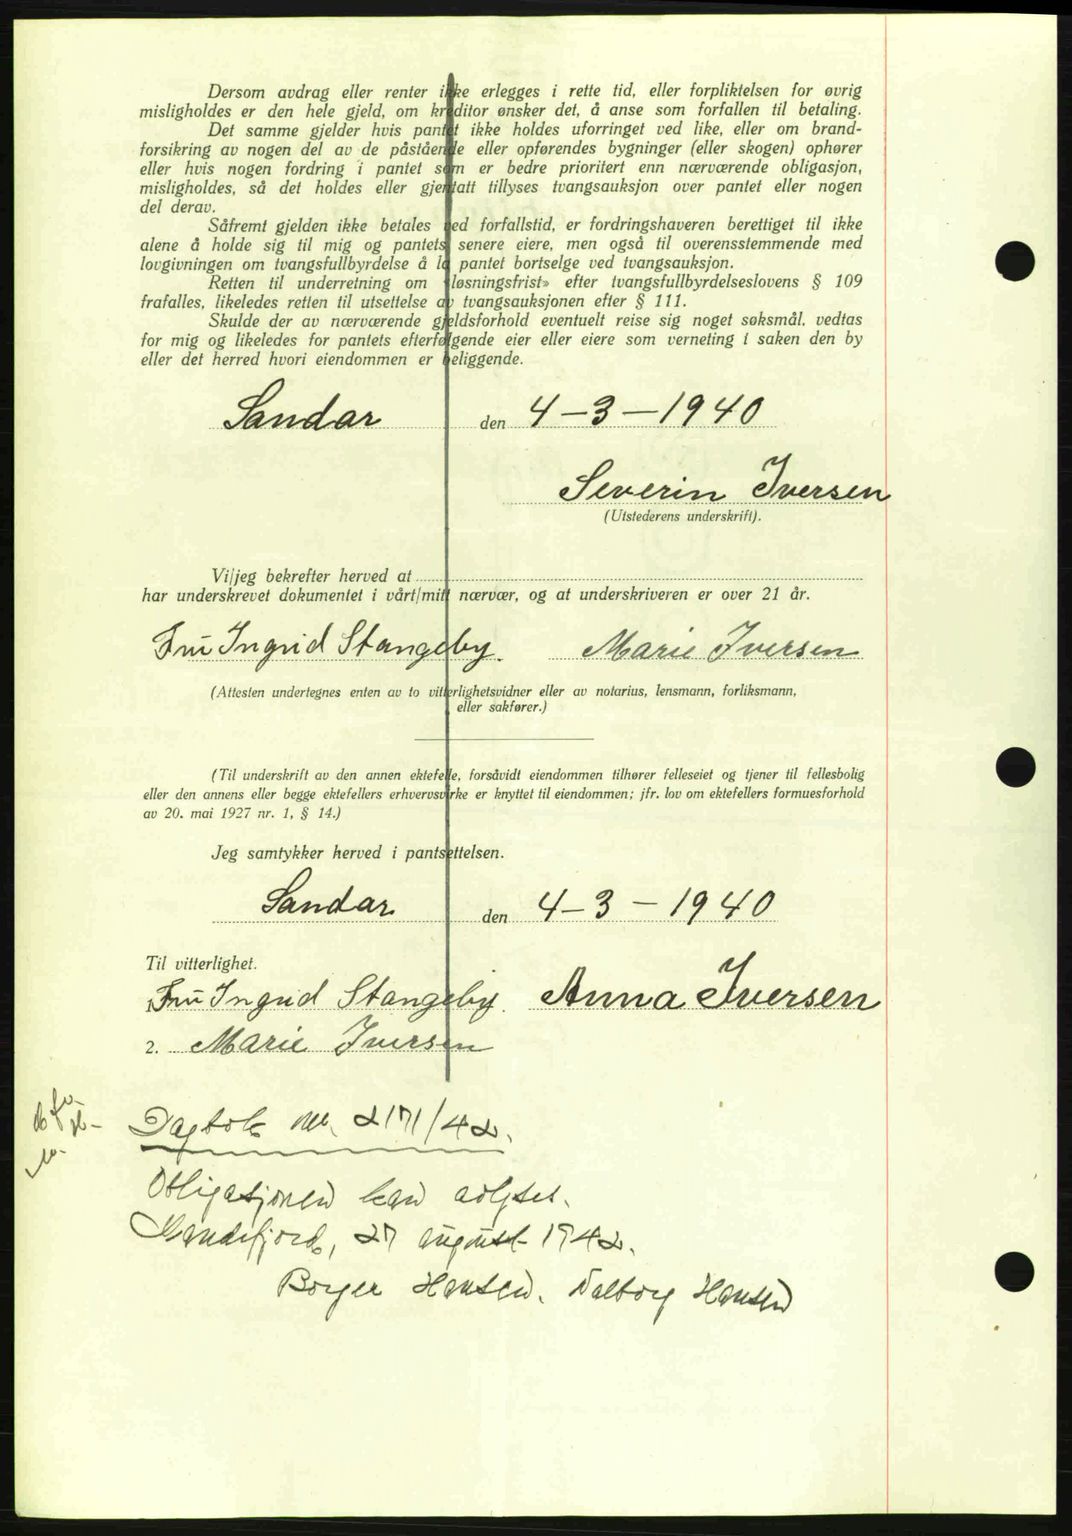 Dersom avdrag eller renter ikke erlegges i rette tid, eller forpliktelsen for øvrig
misligholdes er den hele gjeld, om kreditor ønsker det, å anse som forfallen til betaling.
Det samme gjelder hvis pantet ikke holdes uforringet ved like, eller om brand-
forsikring av nogen del av de påstående eller opførendes bygninger (eller skogen) ophører
eller hvis nogen fordring i pantet som er bedre prioritert enn nærværende obligasjon,
misligholdes, så det holdes eller gjentatt tillyses tvangsauksjon over pantet eller nogen
del derav.
Såfremt gjelden ikke betales ved forfallstid, er fordringshaveren berettiget til ikke
alene å holde sig til mig og pantets senere eiere, men også til overensstemmende med
lovgivningen om tvangsfullbyrdelse å la pantet bortselge ved tvangsauksjon.
Retten til underretning om «løsningsfrist» efter tvangsfullbyrdelseslovens § 109
frafalles, likeledes retten til utsettelse av tvangsauksjonen efter § 111.
Skulde der av nærværende gjeldsforhold eventuelt reise sig noget søksmål, vedtas
for mig og likeledes for pantets efterfølgende eier eller eiere som verneting i saken den by
eller det herred hvori eiendommen er beliggende.
Sandar den 4-3-1940
Severin Iversen
(Utstederens underskrift).
Vi/jeg bekrefter herved at
har underskrevet dokumentet i vårt/mitt nærvær, og at underskriveren er over 21 år.
Fru Ingrid Stangeby. Marie Iversen
(Attesten undertegnes enten av to vitterlighetsvidner eller av notarius, lensmann, forliksmann,
eller sakfører.)
(Til underskrift av den annen ektefelle, forsåvidt eiendommen tilhører felleseiet og tjener til fellesbolig
eller den annens eller begge ektefellers erhvervsvirke er knyttet til eiendommen; jfr. lov om ektefellers formuesforhold
av 20. mai 1927 nr. 1, § 14.)
Jeg samtykker herved i pantsettelsen.
Sandar den 4-3-1940
Til vitterlighet.
1. Fru Ingrid Stangeby. Anna Iversen
2. Marie Iversen
Dagbok nr. 2171/42.
Obligasjonen kan avlyses.
Sandefjord, 27 august 1942.
Borger Hansen. Valborg Hansen